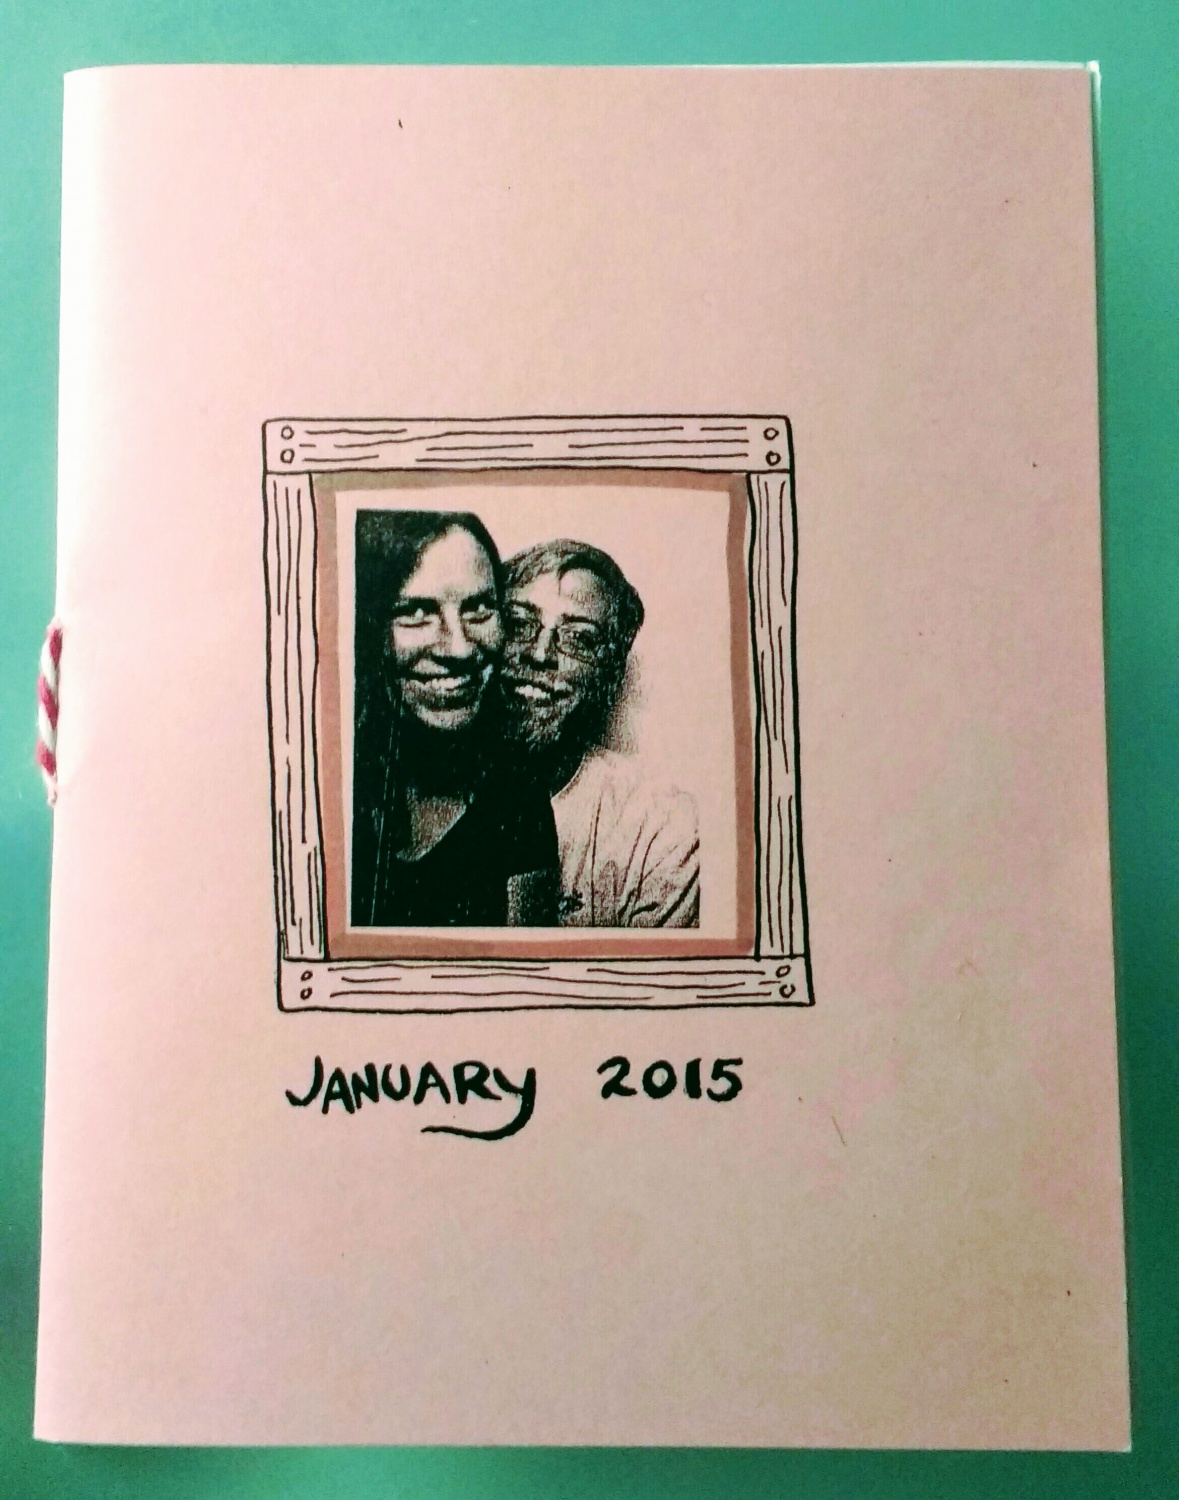 JANUARY 2015